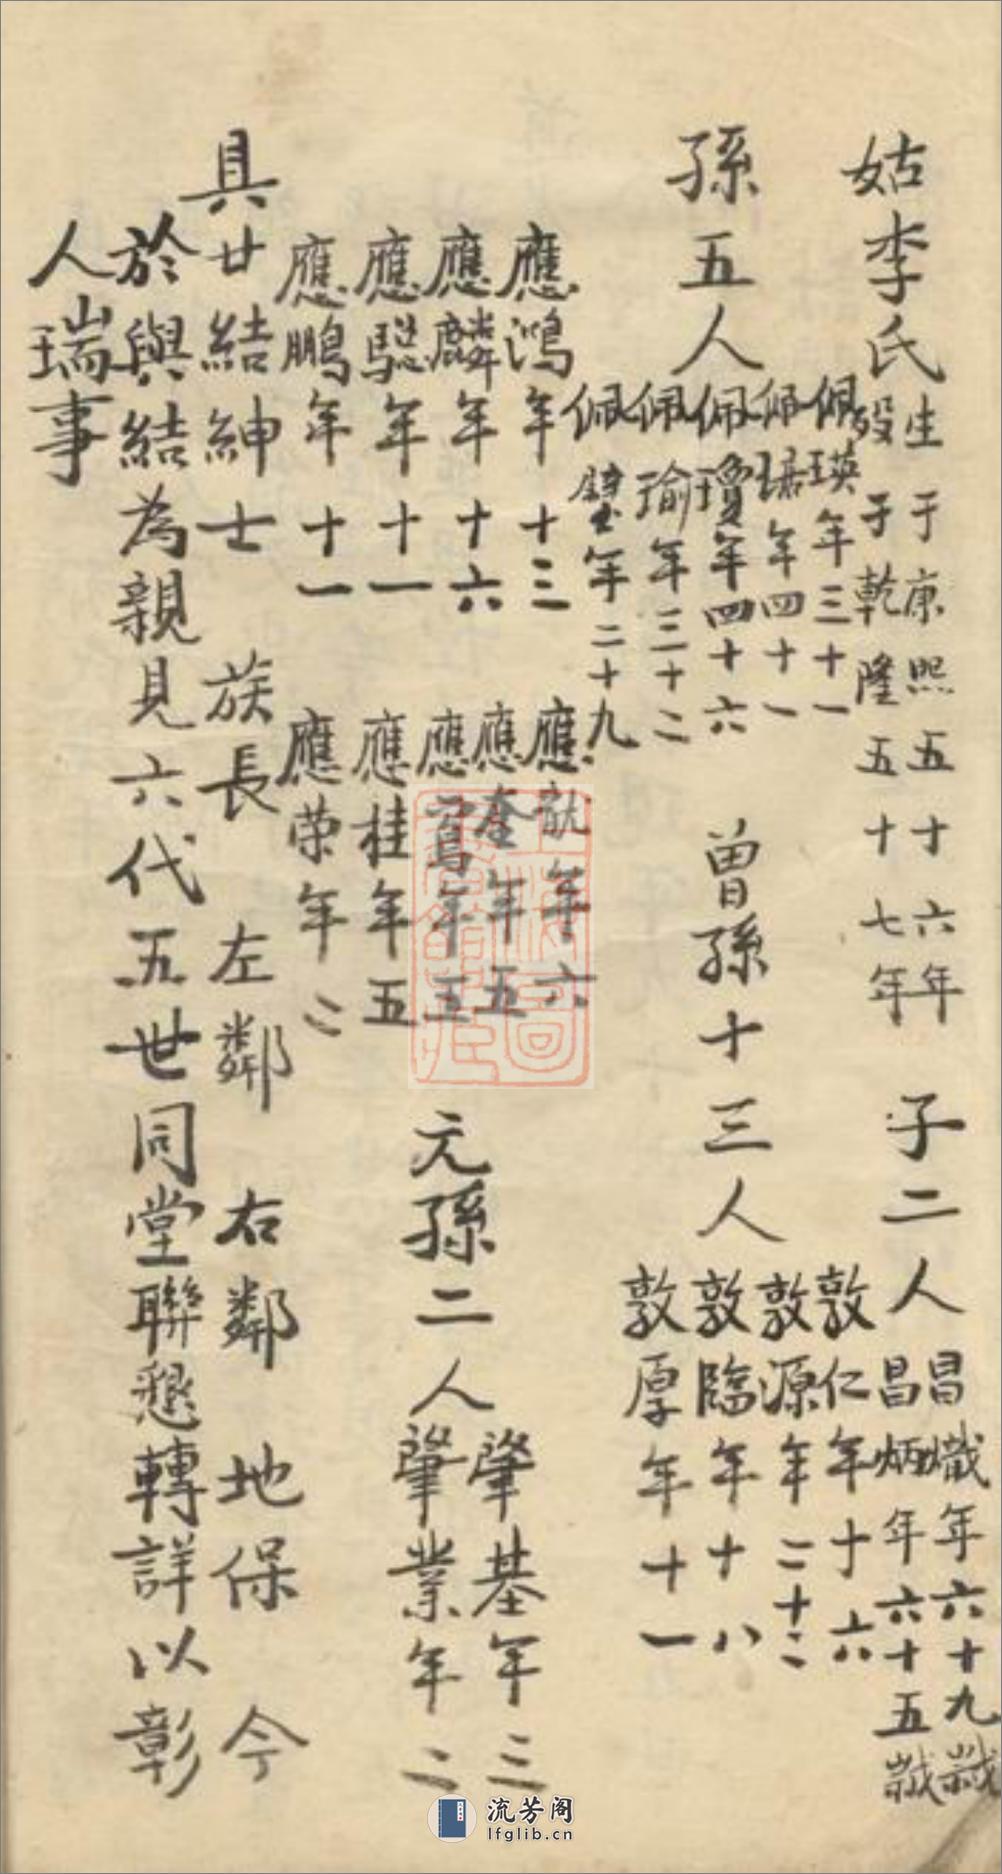 姑李氏 生于康熙五十六年 殁于乾隆五十七年 子二人 昌熾年六十九歲 昌炳年六十五歲
孫五人 佩瑛年三十一 佩琚年四十一 佩瓊年四十六 佩瑜年三十二 佩璧年二十九 曾孫十三人 敦仁年十六 敦源年二十二 敦臨年十八 敦厚年十一
應鴻年十三 應麟年十六 應驄年十一 應鵬年十一 應龍年六 應奎年五 應鶯年五 應桂年五 應荣年二 元孫二人 肇基年三 肇業年二
具廿結紳士 族長 左鄰 右鄰 地保 今
於與結為親見六代五世同堂聯懇轉詳以彰
人瑞事
流芳阁
lfglib.cn